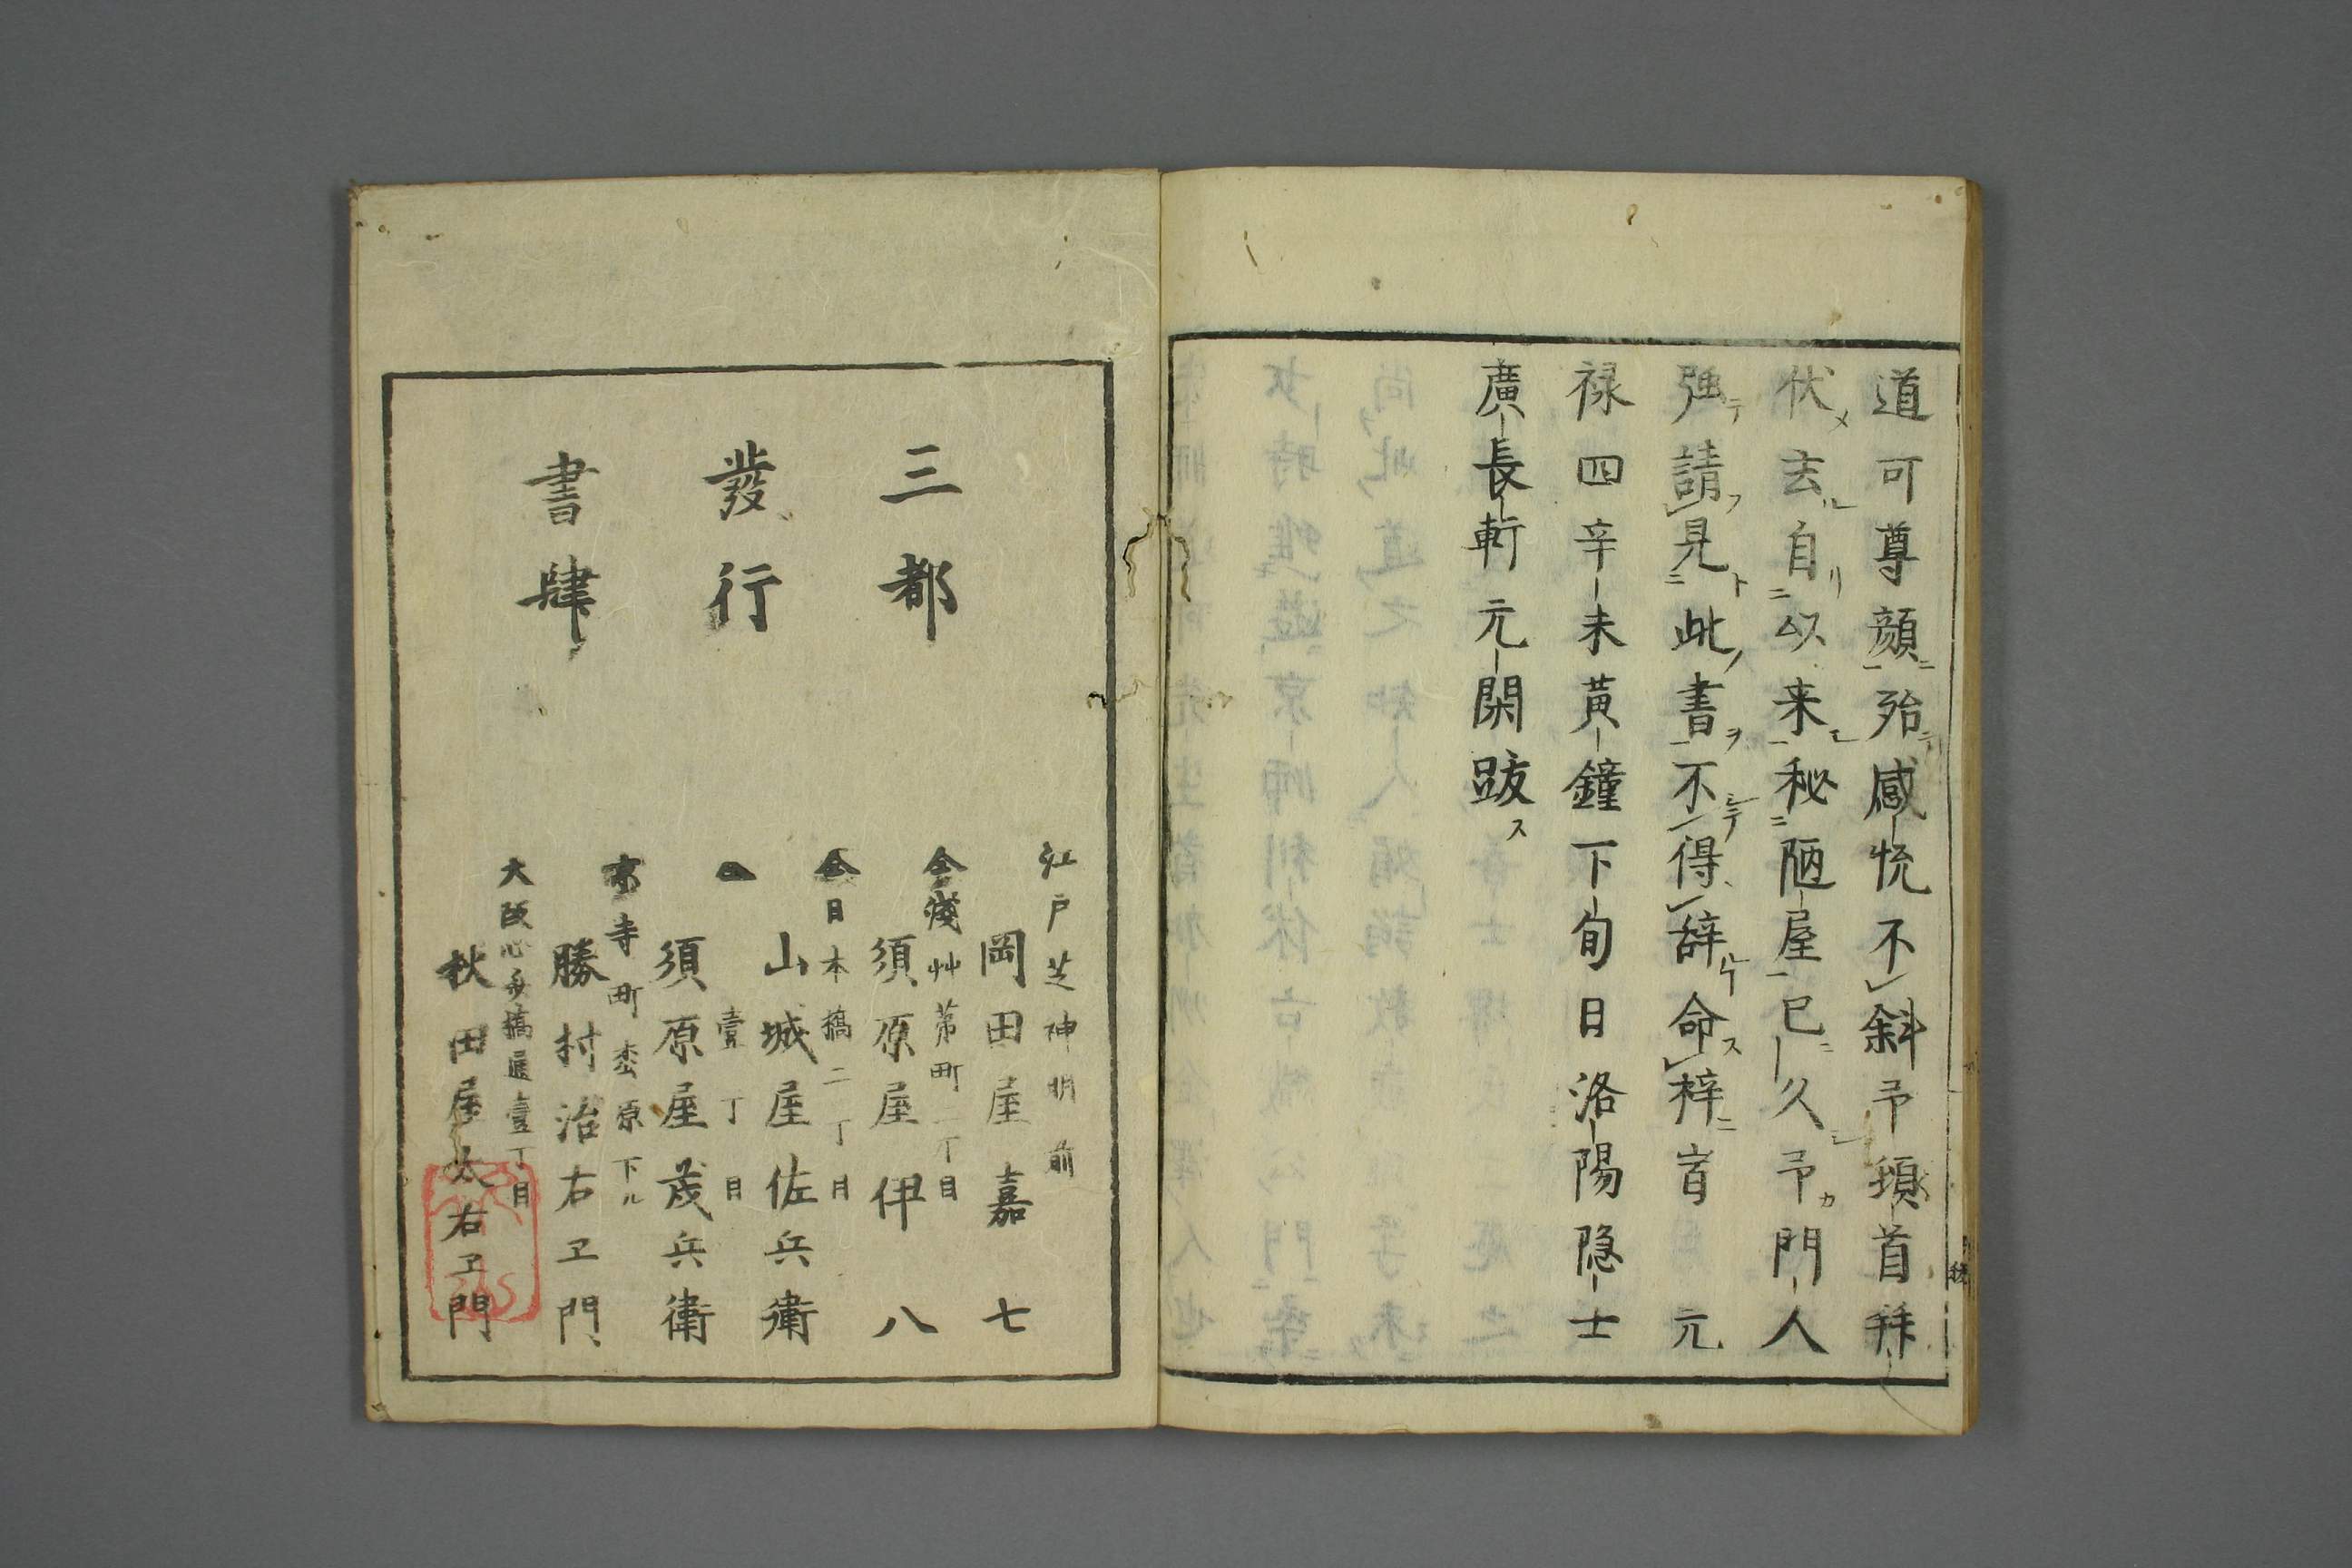 道可尊顔殆感恱不斜予頊首拜
伏去自以来秘陋屋已久予門人
強請見此書不得辞命梓旹元
禄四辛未黄鐘下旬日洛陽隠士
廣長軒元閑跋
三都
發行
書肆
江戸芝神明前
岡田屋嘉七
仝淺艸茅町二丁目
須原屋伊八
仝日本橋二丁目
山城屋佐兵衛
壹丁目
須原屋茂兵衛
京寺町枩原下ル
勝村治右ヱ門
大阪心斎橋通壹丁目
秋田屋太右ヱ門